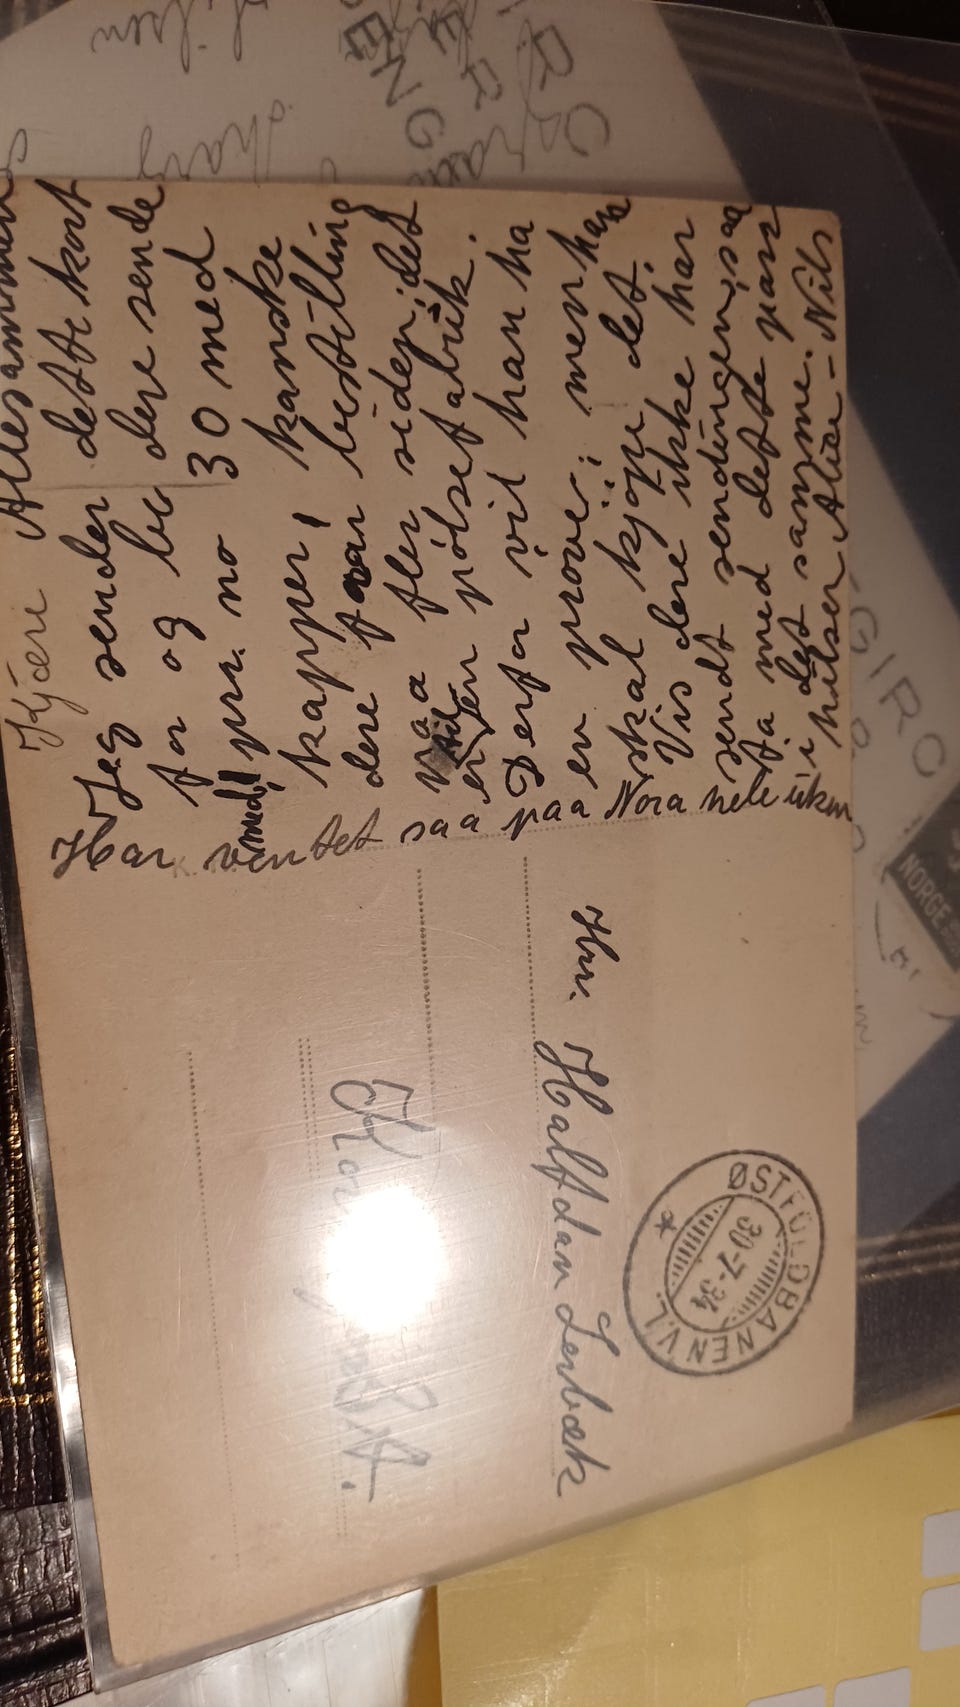 Kjære Allesammen
Jeg sender dette kort
for og be dere sende
med! pr. no 30 med
kapper, kanske
dere faar bestilling
paa fler siden, det
er en pølsefabrik.
Derfor vil han ha
en prøve; men han
skal kjøpe det.
Vis dere ikke har
sendt sendingen, saa
ta med dette par
i det samme.
hilsen Alice - Nils
Har ventet saa paa Nora hele uken
Hr. Halfdan Lerbæk
ØSTFOLDBANEN V.L.
30-7-34
GIRO
NORGE
ENG